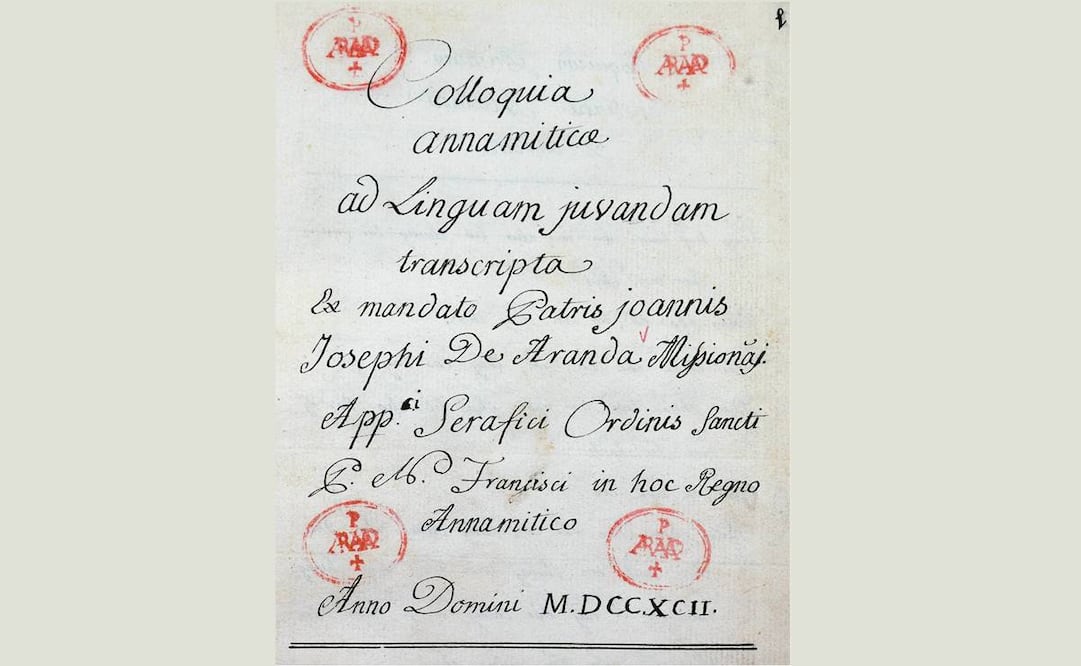 P
ARANDA
P
ARANDA
Colloquia
annamiticæ
ad Linguam juvandam
transcripta
Ex mandato Patris joannis
Josephi De Aranda Missionãj.
App.ci Serafici Ordinis Sancti
P. N. Francisci in hoc Regno
Annamitico
P
ARANDA
P
ARANDA
Anno Domini M.DCC.XCII.